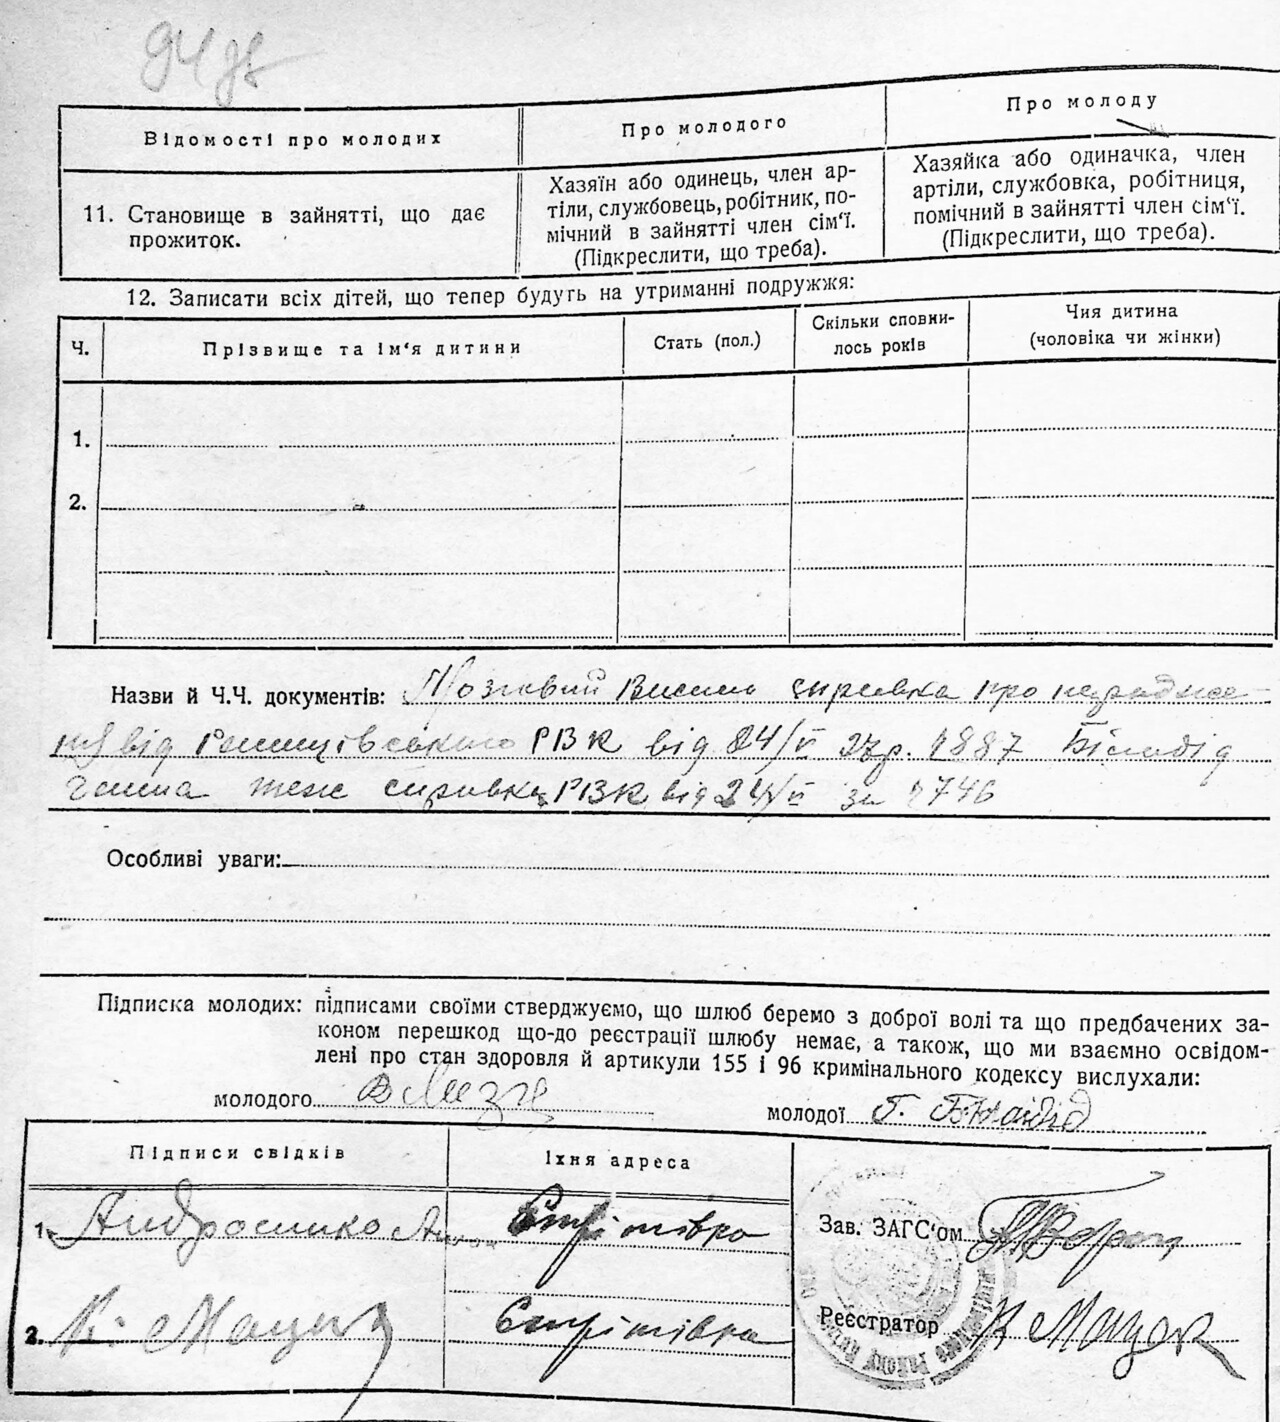 Відомості про молодих
Про молодого
Про молоду
11. Становище в зайнятті, що дає
прожиток.
Хазяїн або одинець, член ар-
тіли, службовець, робітник, по-
мічний в зайнятті член сім'ї.
(Підкреслити, що треба).
Хазяйка або одиначка, член
артіли, службовка, робітниця,
помічний в зайнятті член сім'ї.
(Підкреслити, що треба).
12. Записати всіх дітей, що тепер будуть на утриманні подружжя:
Ч.
Прізвище та ім'я дитини
Стать (пол.)
Скільки сповни-
лось років
Чия дитина
(чоловіка чи жінки)
1.
2.
Назви й Ч.Ч. документів: справка про
від РВК від 24/VI 1887 Білодід
справка РВК від 24/VI за 1746
Особливі уваги:
Підписка молодих: підписами своїми стверджуємо, що шлюб беремо з доброї волі та що предбачених за-
коном перешкод що-до реєстрації шлюбу немає, а також, що ми взаємно освідом-
лені про стан здоровля й артикули 155 і 96 кримінального кодексу вислухали:
молодого
молодої Г. Білодід
Підписи свідків
Їхня адреса
1. Андросенко
Єпрітівка
Зав. ЗАГС'ом
2. К.
Реєстратор К